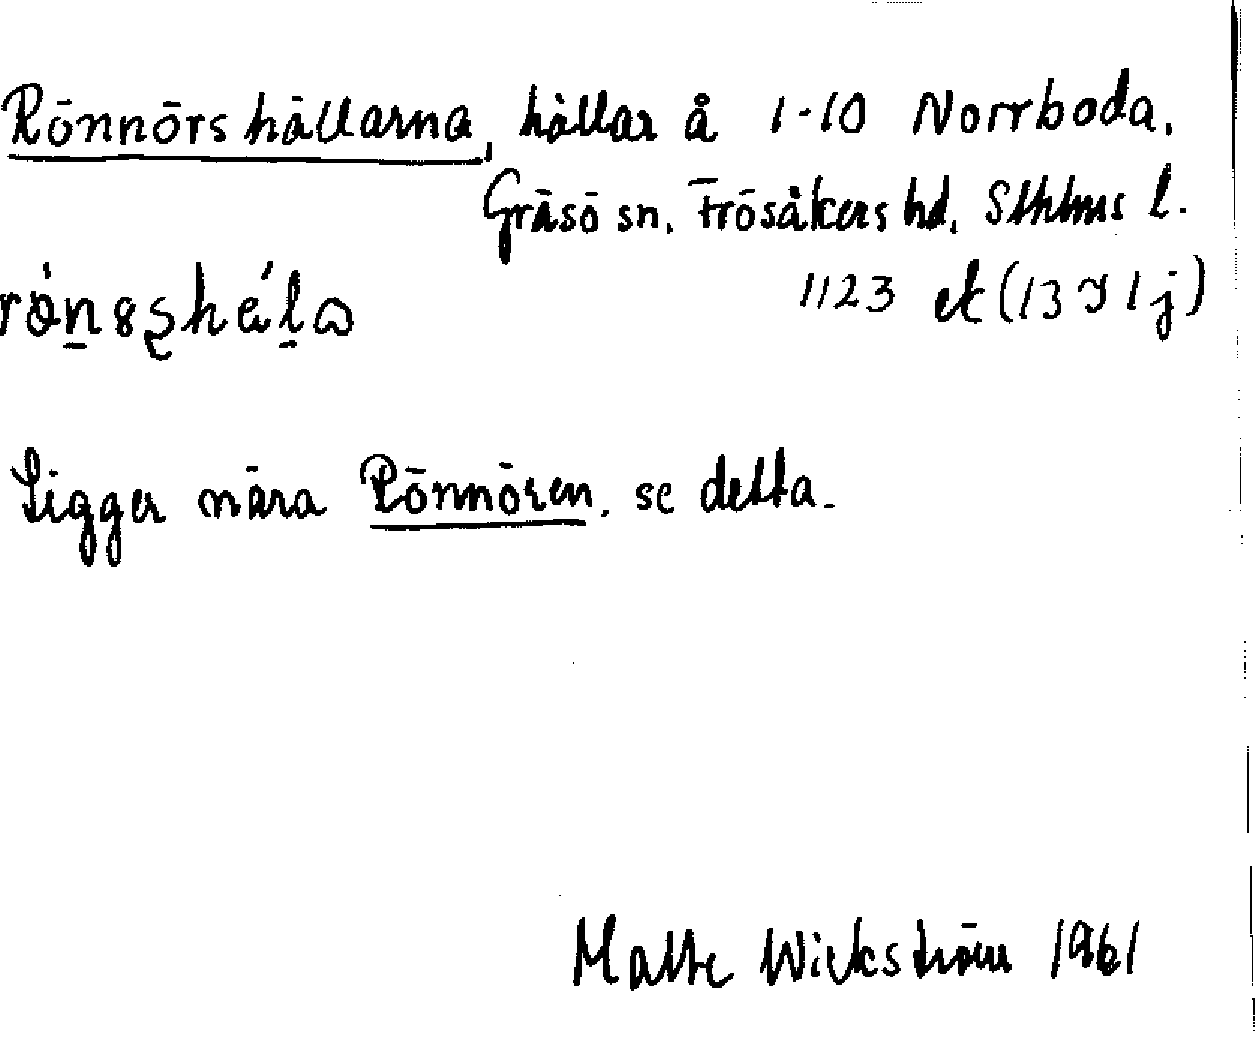 Rönnörshällarna, hällar å 1-10 Norrboda,
Gräsö sn, Frösåkers hd, Sthlms l.
1123 ek (13 I 1 j)
Ligger nära Rönnören, se detta.
Malte Wickström 1961